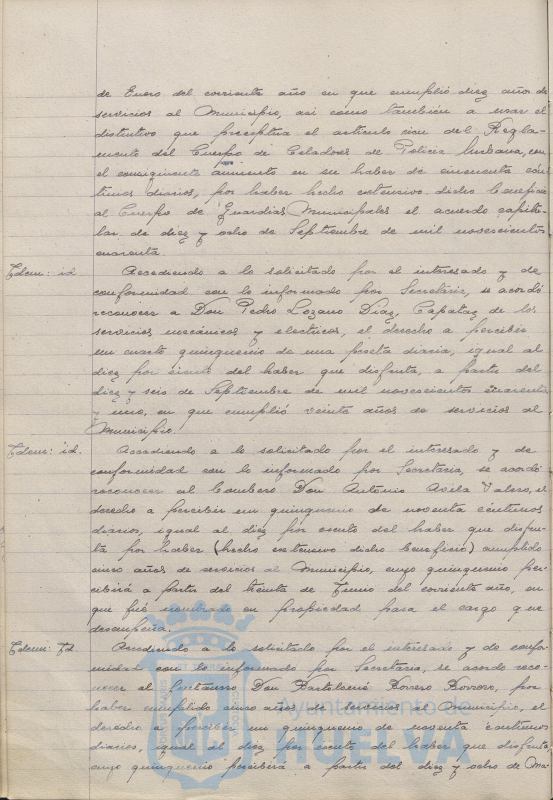 de Enero del corriente año en que cumplió diez años de
servicios al Municipio, así como también a usar el
distintivo que preceptúa el artículo cien del Regla-
mento del Cuerpo de Celadores de Policía Urbana, con
el consiguiente aumento en su haber de cincuenta cén-
timos diarios, por haber hecho extensivo dicho beneficio
al Cuerpo de Guardias Municipales el acuerdo capitu-
lar de diez y ocho de Septiembre de mil novecientos
cuarenta.
Idem: id. Accediendo a lo solicitado por el interesado y de
conformidad con lo informado por Secretaría, se acordó
reconocer a Don Pedro Lozano Diaz, Capataz de los
servicios mecánicos y electricos, el derecho a percibir
un cuarto quinquenio de una peseta diaria, igual al
diez por ciento del haber que disfruta, a partir del
diez y seis de Septiembre de mil novecientos cuarenta
y uno, en que cumplió veinte años de servicios al
Municipio.
Idem: id. Accediendo a lo solicitado por el interesado y de
conformidad con lo informado por Secretaría, se acordó
reconocer al bombero Don Antonio Avila Valero, el
derecho a percibir un quinquenio de noventa céntimos
diarios, igual al diez por ciento del haber que disfru-
ta por haber (hecho extensivo dicho beneficio) cumplido
cinco años de servicios al Municipio, cuyo quinquenio per-
cibirá a partir del treinta de Junio del corriente año, en
que fué nombrado en propiedad para el cargo que
desempeña.
Idem: Id. Accediendo a lo solicitado por el interesado y de confor-
midad con lo informado por Secretaría, se acordó reco-
nocer al Don Bartolomé Romero Romero, por
haber cumplido cinco años de servicios al Municipio, el
derecho a percibir un quinquenio de noventa céntimos
diarios, igual al diez por ciento del haber que disfruta,
cuyo quinquenio percibirá a partir del diez y ocho de Ma-
Ayuntamiento de
HUELVA